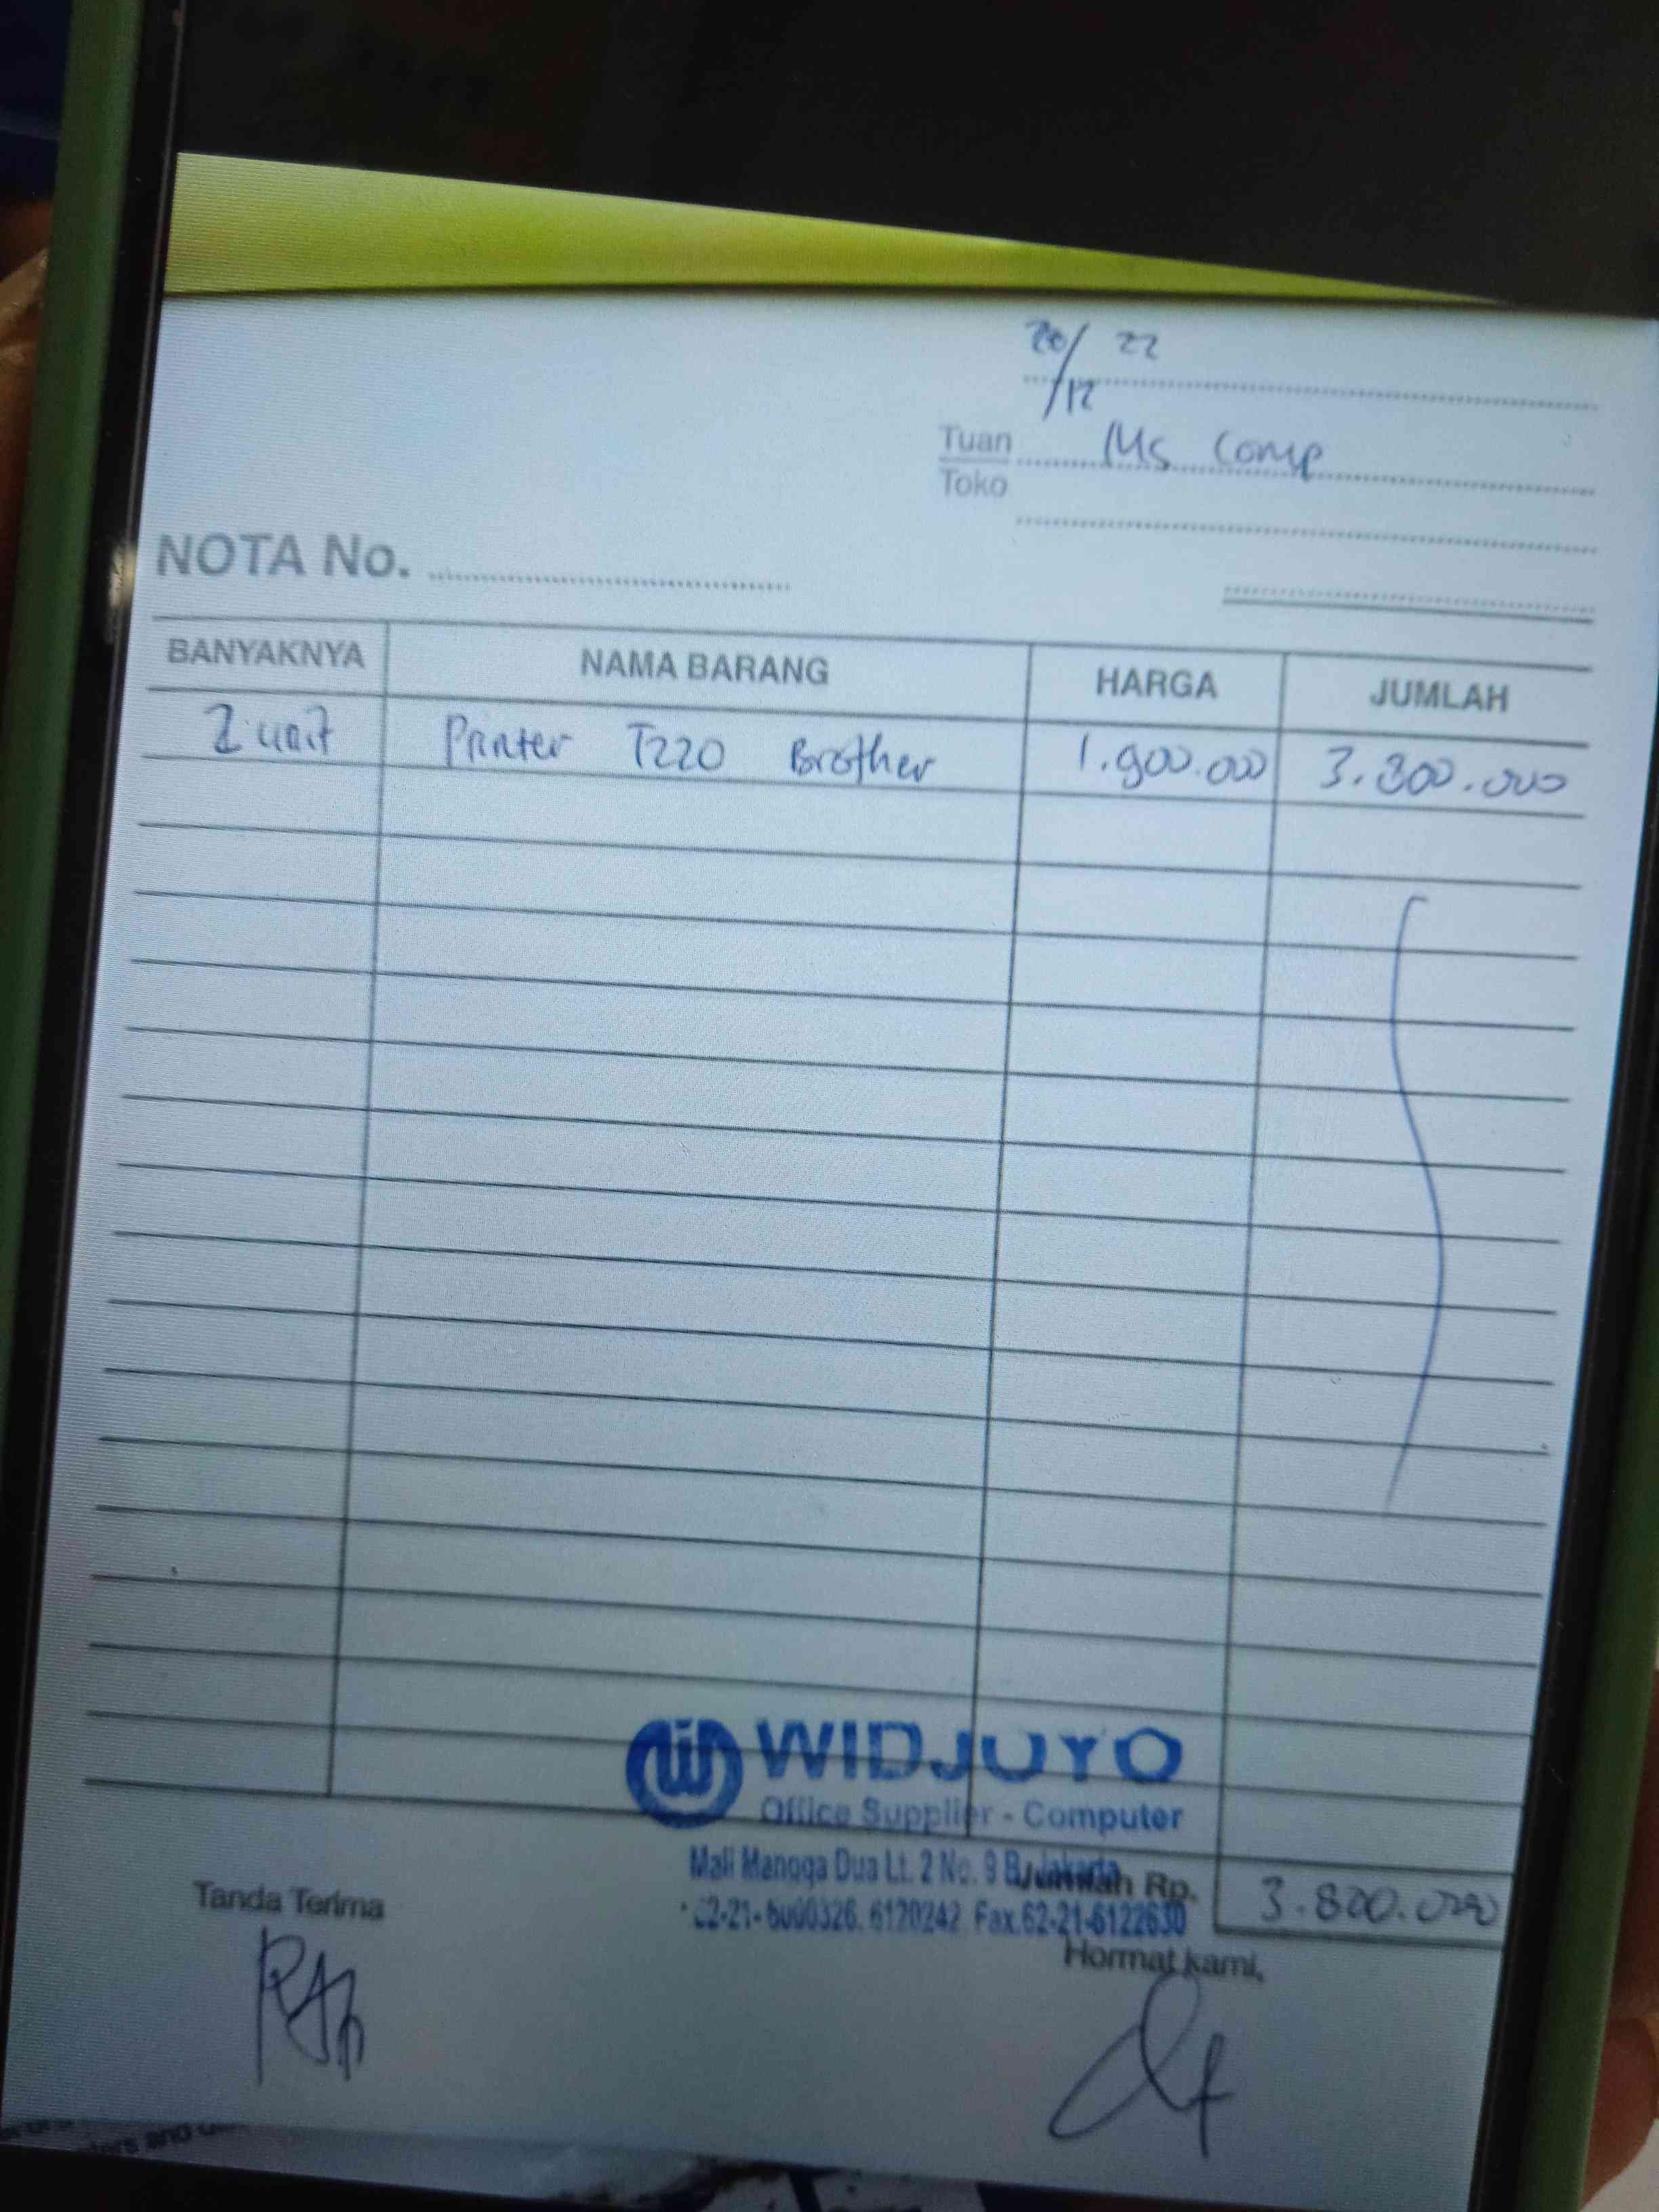 20/12 22
Tuan Ms Comp
Toko
NOTA No.
BANYAKNYA NAMA BARANG HARGA JUMLAH
2 unit Printer T220 Brother 1.900.000 3.800.000
WIDJUYO
Office Supplier - Computer
Mall Mangga Dua Lt. 2 No. 9 B, Jakarta
Jumlah Rp. 3.800.000
62-21- 6120242 Fax.62-21-6122630
Tanda Terima
Hormat kami,